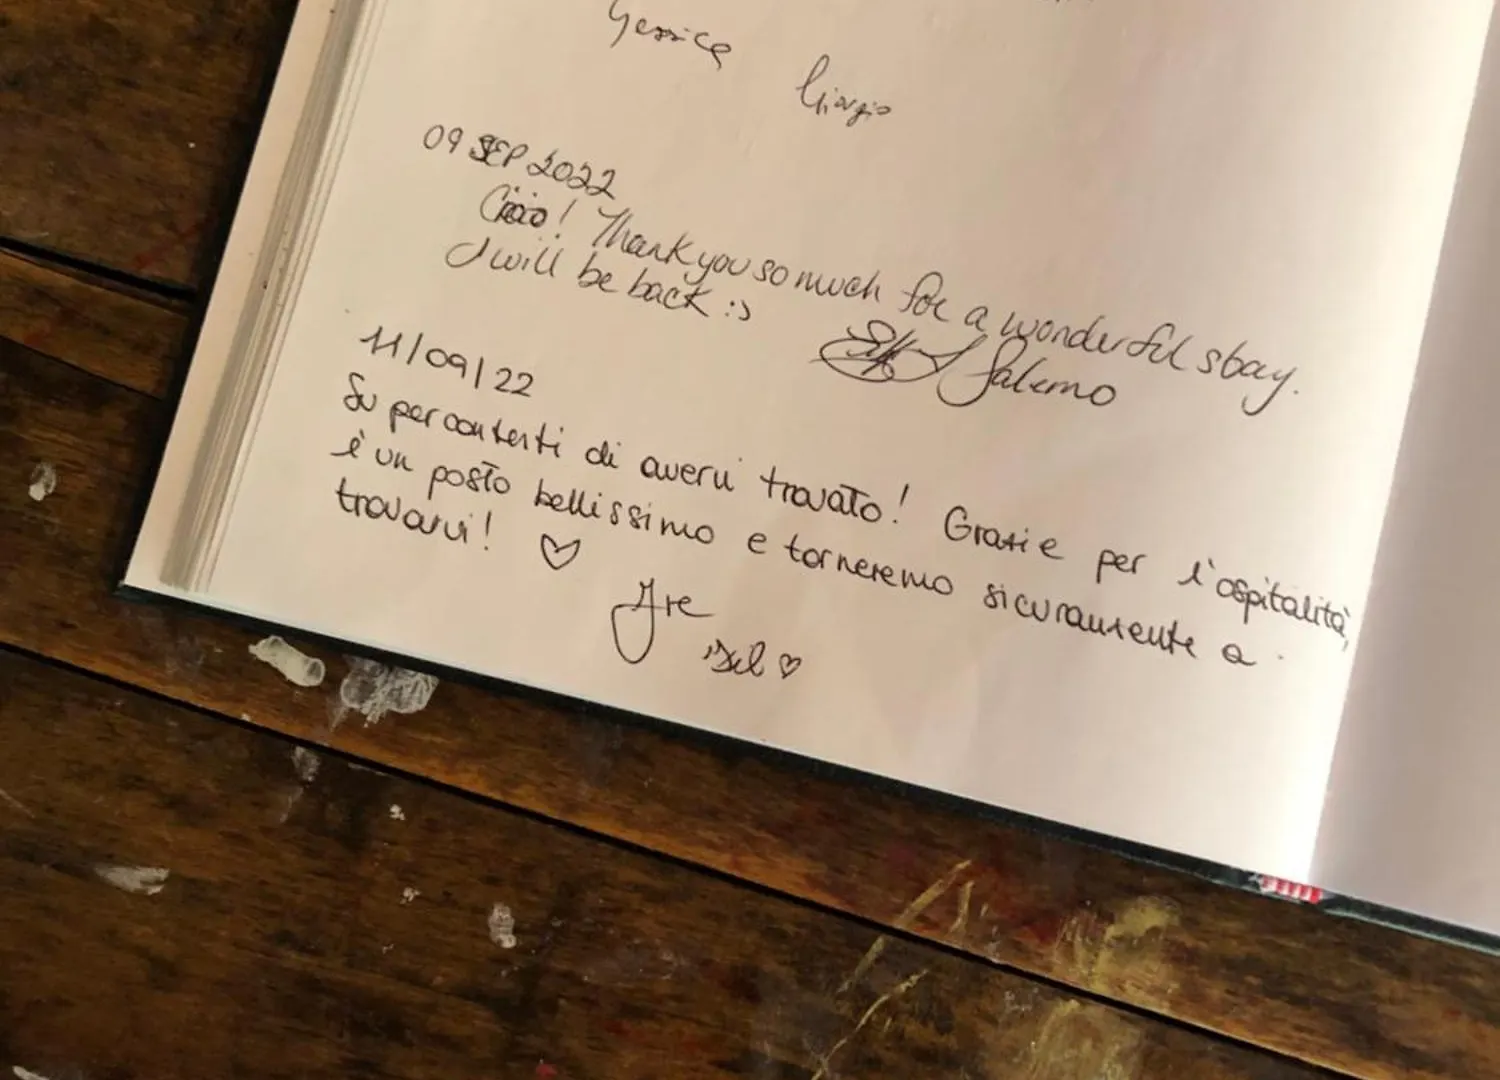 Gessica Giorgio
09 SEP 2022
Ciao! Thank you so much for a wonderful stay.
I will be back :)
Salerno
11/09/22
Super contenti di avervi trovato! Grazie per l'ospitalità,
è un posto bellissimo e torneremo sicuramente a
trovarvi! ♡
Ire
♡